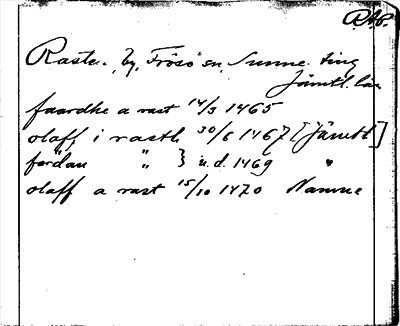 R.A.P.
Rasta. by. Frösö sn. Sunne ting
Jämtl. län
faardhe a rast 14/3 1465
olaff i rasth 30/6 1467 [Jämtl]
fardan " } u.d. 1469 "
olaff a rast 15/10 1470